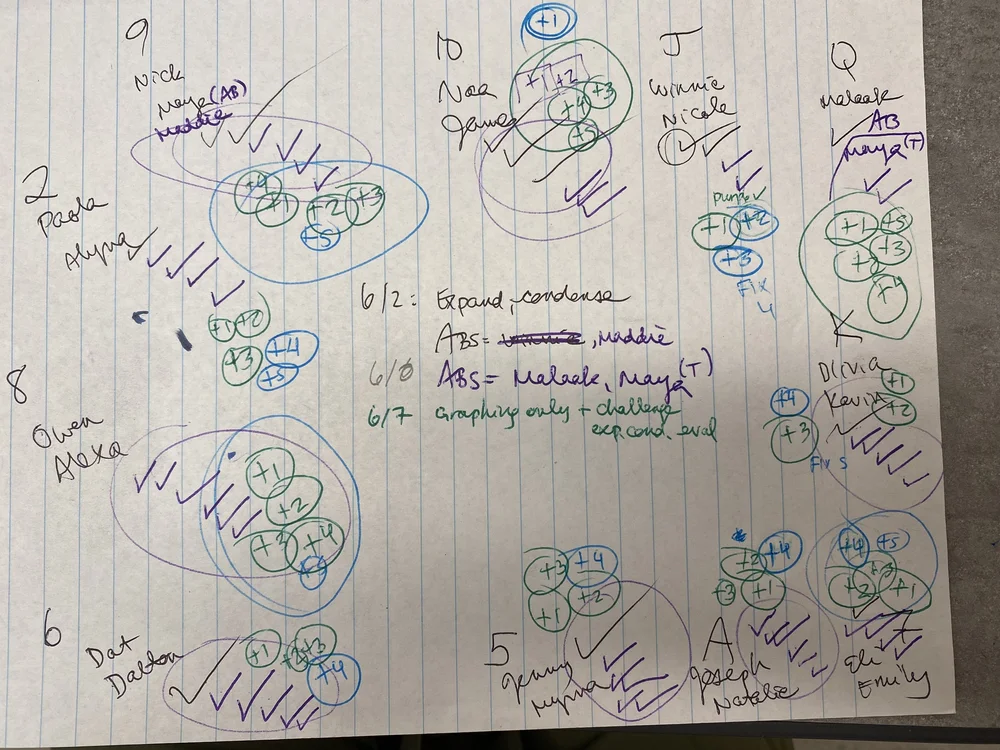 9
Nick
Maya (AB)
Maddie
+4 +1 +2 +3
+5
10
+1
Noa
James
+1 +2
+4 +3
+5
J
Winnie
Nicole
purple ✓
+1 +2
+3
Fix
4
Q
Malaak
AB
Maya (T)
+1 +5
+3
+2
+4
2
Paola
Alyna
+1 +2
+3 +4
+5
6/2: Expand, condense
ABS= Winnie, Maddie
6/6 ABS= Malaak, Maya (T)
6/7 Graphing only + challenge
exp. cond. eval
K
Olivia
Kevin
+1
+2
+4
+3
Fix 5
8
Owen
Alexa
+1
+2
+3 +4
+5
6
Dat
Dalton
+1 +2 +3
+4
5
Jenny
Myrna
+3 +4
+1 +2
A
Joseph
Natalie
+2 +4
+3 +1
7
Eli
Emily
+4 +5
+3
+2 +1